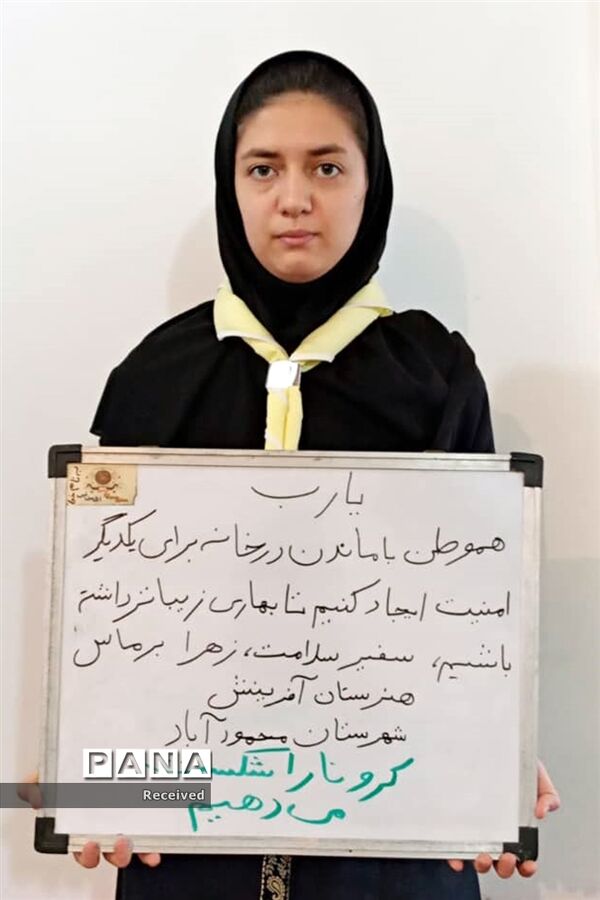 یارب
هموطن با ماندن در خانه برای یکدیگر
امنیت ایجاد کنیم تا بهاری زیباتر داشته
باشیم، سفیر سلامت، زهرا برماس
هنرستان آفرینش
شهرستان محمودآباد
کرونا را شکست
می‌دهیم
PANA
Received